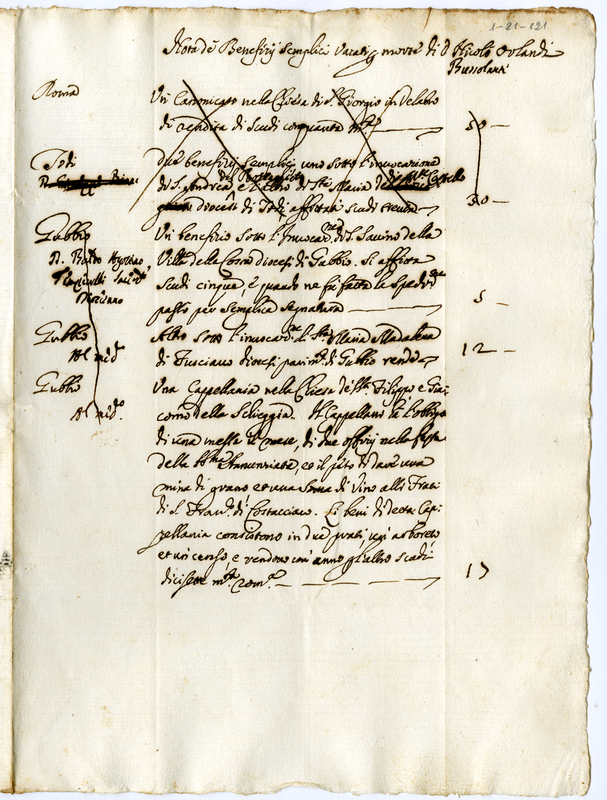 1-21-121
Nota de Benefizij semplici Vacati p morte di D Nicolò Orlandi
Bussolanti
Roma
Un Canonicato nella Chiesa di S. Giorgio in Velabro
di rendita di scudi cinquanta mta 50
Todi
due benefizij semplici uno sotto l'invocazione
di S. Andrea e l'altro di Sta Maria Castello
diocesi di Todi affittati scudi trenta 30
Gubbio
Un benefizio sotto l'Invocazne di S. Savino della
Villa della diocesi di Gubbio. Si affitta
scudi cinque, e quando ne fu fatta la spedizne
passò per semplice segnatura 5
Gubbio
Al medo
Altro sotto l'invocazne di Sta Maria Madalena
di Fusciano diocesi parimte di Gubbio rende 12
Gubbio
Al medo
Una Cappellania nella Chiesa de SSti Filippo e Gia:
como della Scheggia. Il Cappellano hà l'obbligo
di una messa il mese, di due offizij nella festa
della SSma Annunziata, ed il peso di dare una
mina di grano et una soma di Vino alli Frati
di S. Franco di Costacciaro. Li beni di detta Cap:
pellania consistono in due prati, arboreto
et un censo e rendono un' anno p l'altro scudi
dicisette mta romta 17